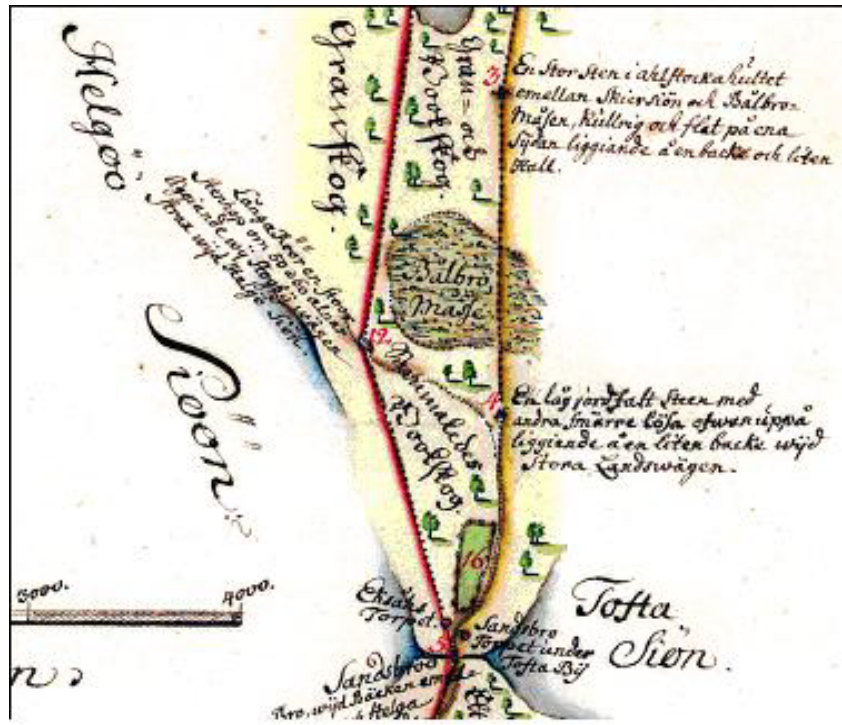 Helgoö
Siöön.
Granskog.
Gran= och
Bookskog.
3
En stor sten i ahlstockahultet
emellan Skiersiön och Bälbro=
Måsen, Kullrig och flat på ena
Sydan liggiande å en backe och liten
Hall.
Långa Roor en stoor
Stenhop om 50 a 60 alnar
liggiande
Strax wijd Helgö Siön.
Bälbro
Måsse
12.
Bookskog.
4
En låg jordfast Steen med
andra smärre lösa ofwenuppå
liggiande å en liten backe wijd
Stora Landswägen.
16
3000.
4000.
Torpet.
Sandsbro
Torpet under
Tofta Bÿ
Tofta
Siön.
5
Sandsbroo
Bro, wijd Bäcken
Helga